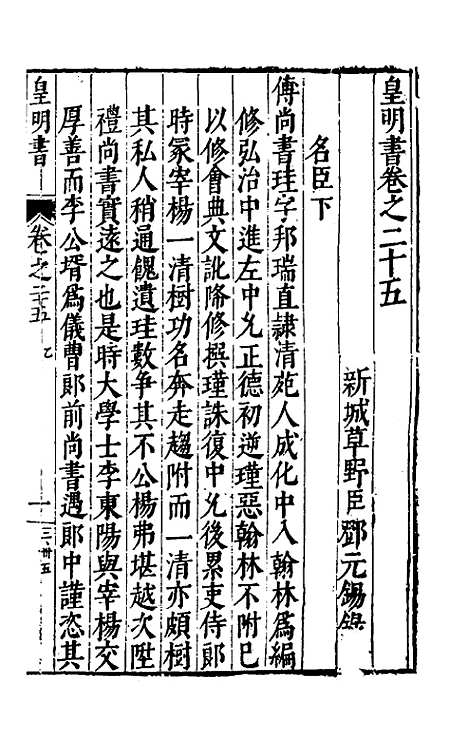 皇明書卷之二十五
新城草野臣鄧元錫錄
名臣下
傅尚書珪字邦瑞直隸清苑人成化中入翰林爲編
修弘治中進左中允正德初逆瑾惡翰林不附已
以修會典文訛降修撰瑾誅復中允後累吏侍郎
時冢宰楊一清樹功名奔走趨附而一清亦頗樹
其私人稍通餽遺珪數爭其不公楊弗堪越次陞
禮尚書實遠之也是時大學士李東陽與宰楊交
厚善而李公壻爲儀曹郎前尚書遇郎中謹恣其
皇明書
卷之二十五
一
三、卅五